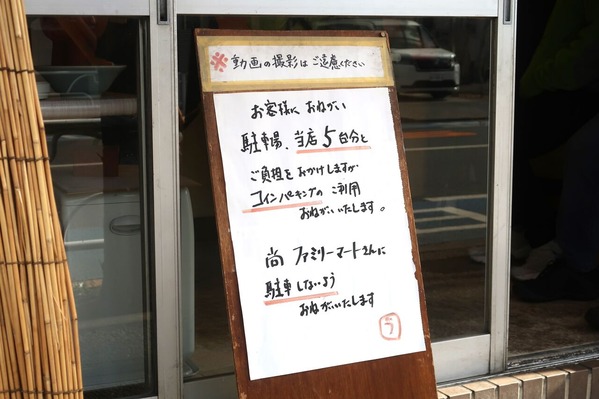 ※動画の撮影はご遠慮ください
お客様におねがい
駐車場、当店5台分と
ご負担をおかけしますが
コインパーキングのご利用
おねがいいたします。
尚 ファミリーマートさんに
駐車しないよう
おねがいいたします
う